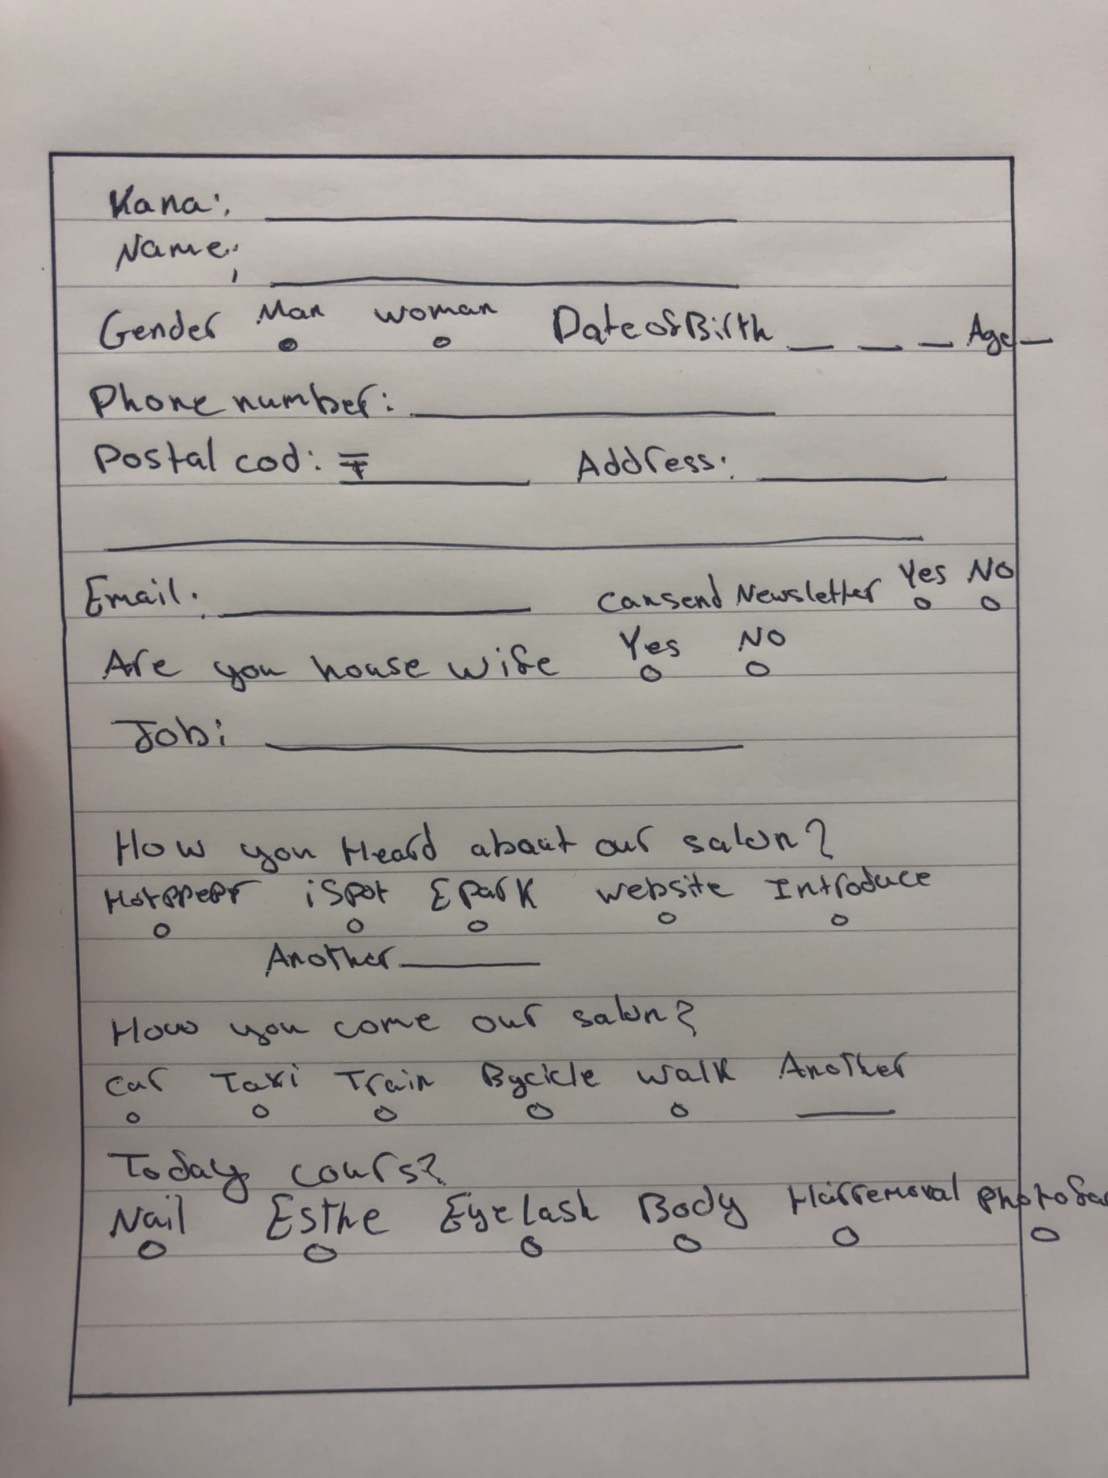 Kana:
Name:
Gender Man woman Date of Birth Age
Phone number:
Postal cod: 〒 Address:
Email: Cansend Newsletter Yes No
Are you house wife Yes NO
Job:
How you Heard abaut our salon?
Hotppepr iSpot Epark website Introduce
Another
How you come our salon?
Car Taxi Train Byckle walk Another
Today cours?
Nail Esthe Eyelash Body Hairremoval